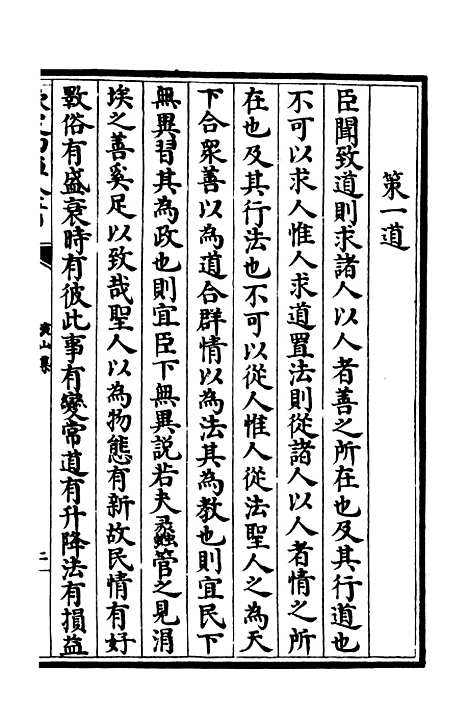 第一道
臣聞致道則求諸人以人者善之所在也及其行道也
不可以求人惟人求道置法則從諸人以人者情之所
在也及其行法也不可以從人惟人從法聖人之為天
下合衆善以為道合群情以為法其為教也則宜民下
無異習其為政也則宜臣下無異説若夫蠡管之見涓
埃之善奚足以致哉聖人以為物態有新故民情有好
斁俗有盛衰時有彼此事有變常道有升降法有損益
山集
二